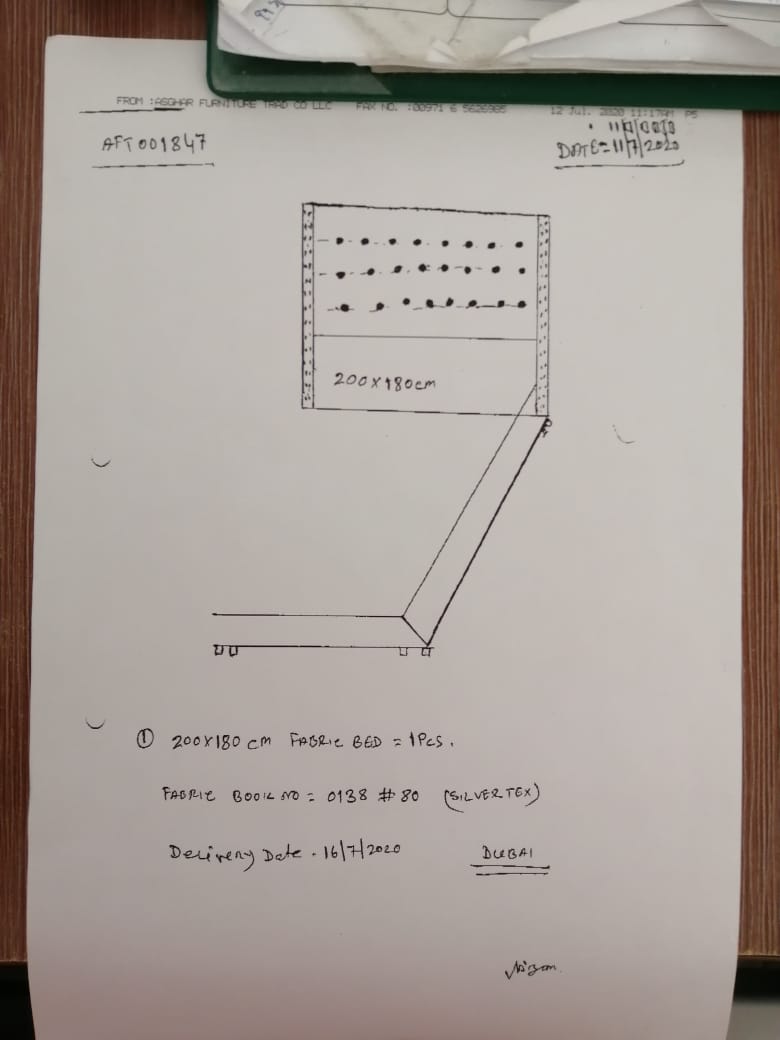 FROM :ASGHAR FURNITURE TRAD CO LLC FAX NO. :00971 6 5626985 12 Jul. 2020 11:17AM P5
AFT001847
DATE=11/7/2020
200X180cm
① 200X180 CM FABRIC BED = 1PCS.
FABRIC BOOK NO = 0138 #80 (SILVERTEX)
Delivery Date . 16/7/2020 DUBAI
Nizam.